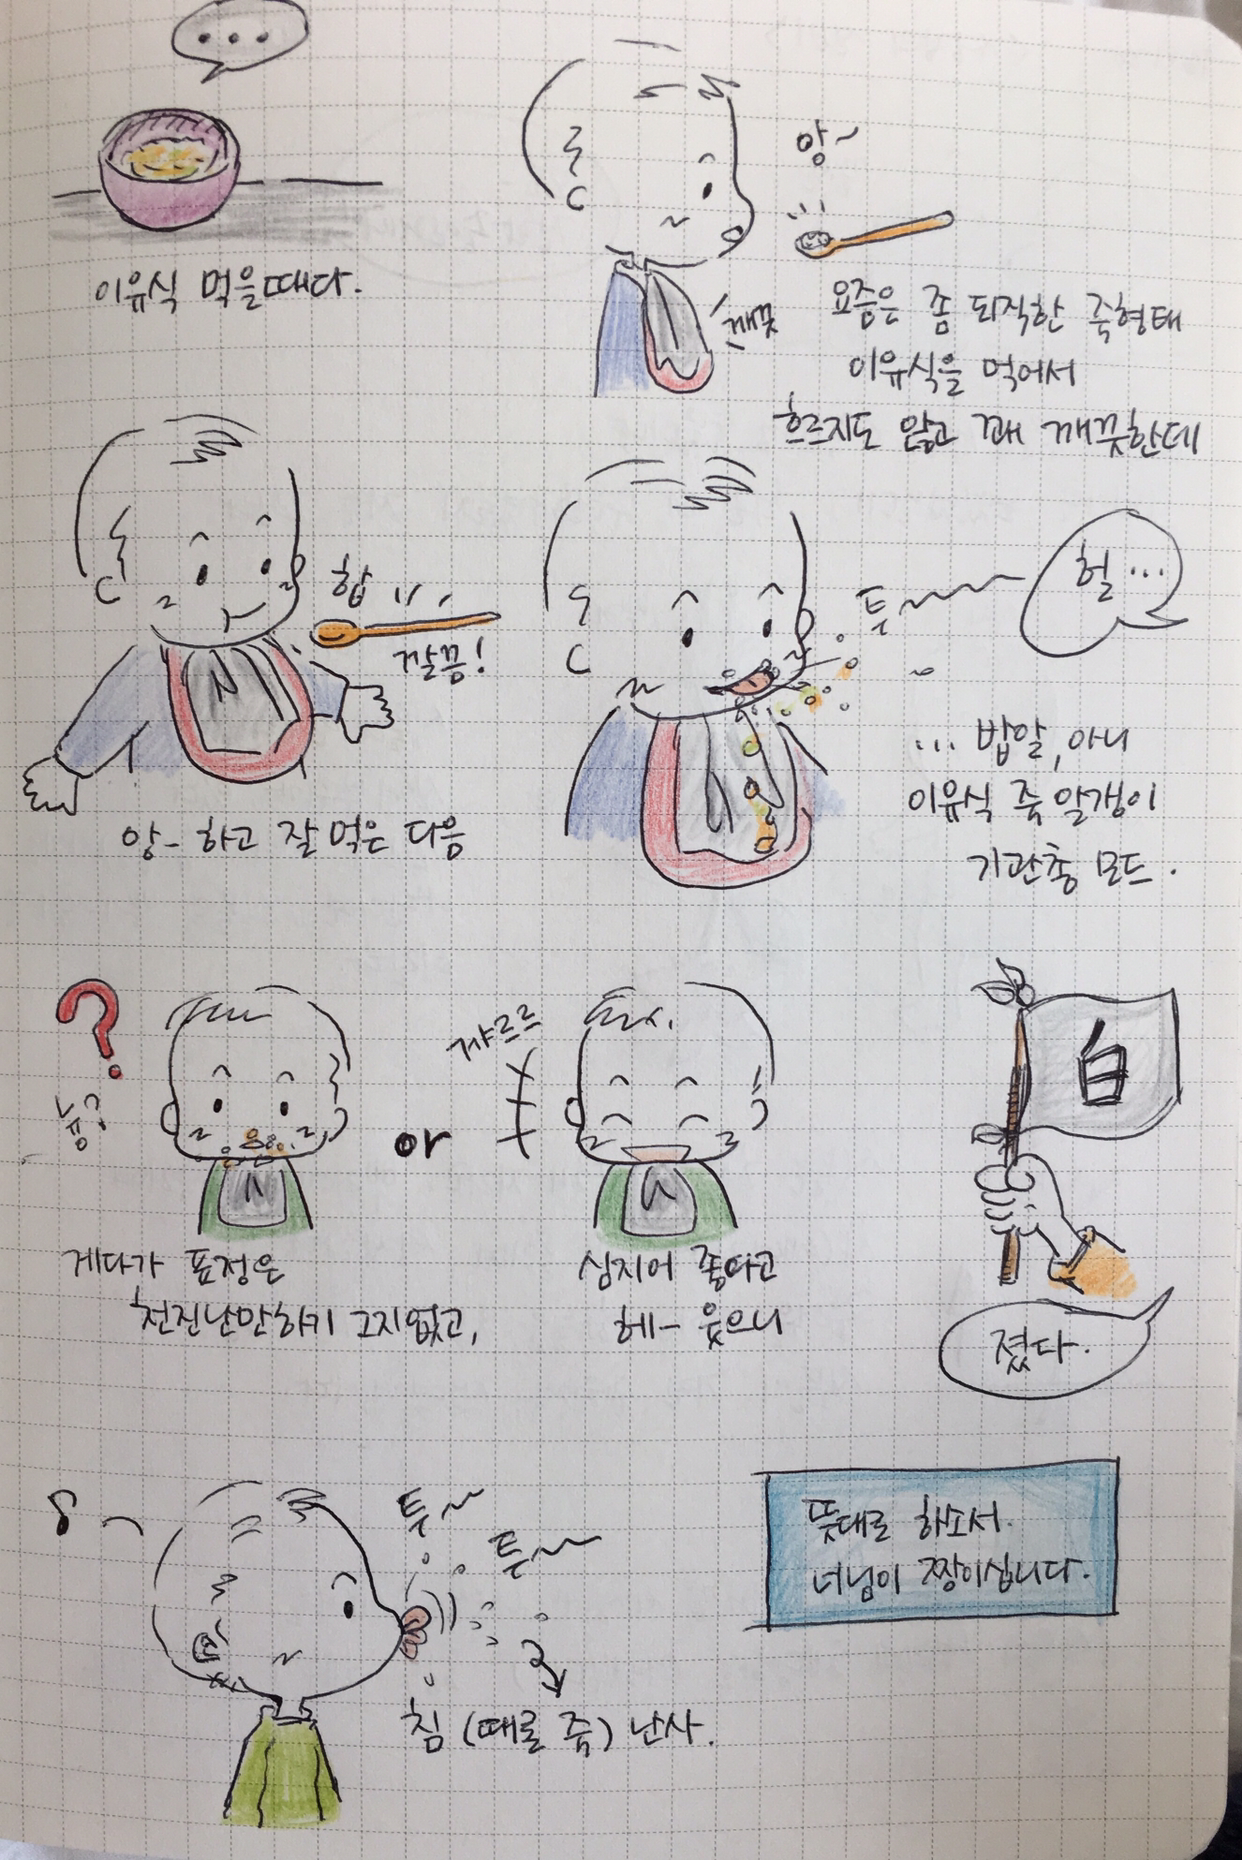 ...
이유식 먹을때다.
앙~
깨끗
요즘은 좀 되직한 죽형태
이유식을 먹어서
흐르지도 않고 꽤 깨끗한데
합
깔끔!
앙- 하고 잘 먹은 다음
투~~~
헐...
... 밥알, 아니
이유식 죽 알갱이
기관총 모드.
?
능?
게다가 표정은
천진난만하기 그지없고,
or
꺄르르
심지어 좋다고
헤- 웃으니
白
졌다.
투~
투~
침 (때로 죽) 난사.
뜻대로 하소서.
너님이 짱이십니다.